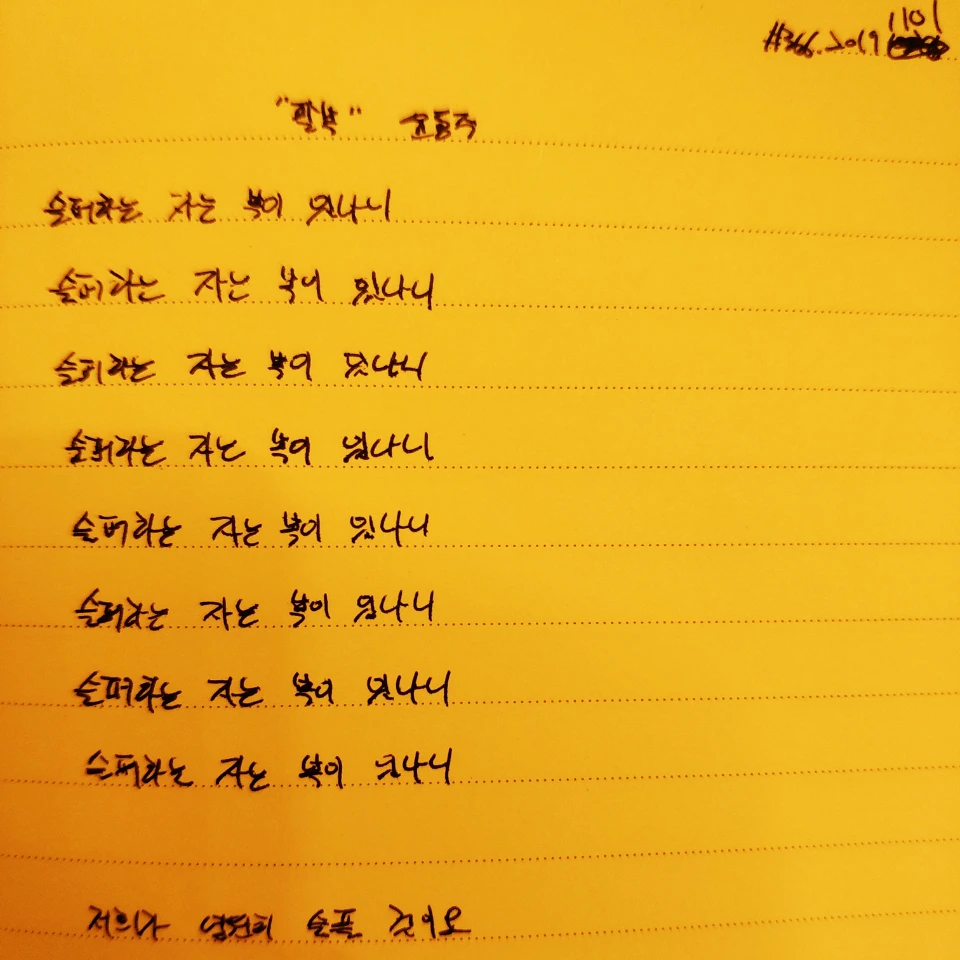 #366. 2019 1101
"팔복" 윤동주
슬퍼하는 자는 복이 있나니
슬퍼하는 자는 복이 있나니
슬퍼하는 자는 복이 있나니
슬퍼하는 자는 복이 있나니
슬퍼하는 자는 복이 있나니
슬퍼하는 자는 복이 있나니
슬퍼하는 자는 복이 있나니
슬퍼하는 자는 복이 있나니
저희가 영원히 슬플 것이오